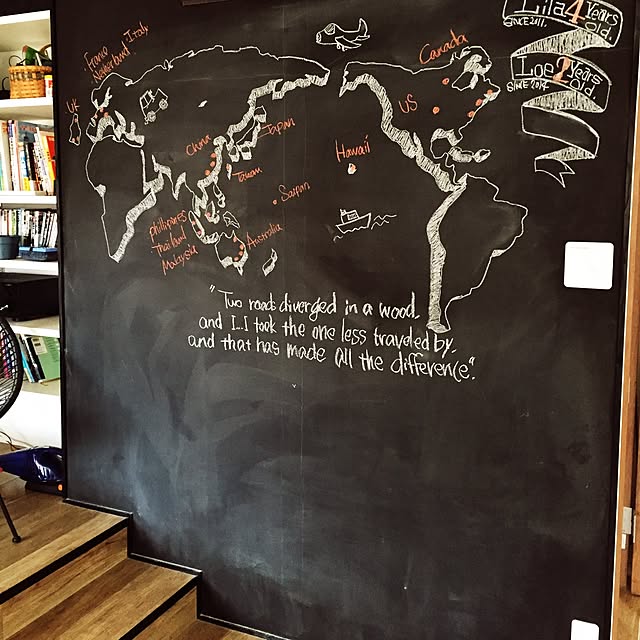 Lila 4 Years old.
SINCE 2011.
Loe 2 Years old
SINCE 2014.
France Italy
Netherland
UK
Canada
US
China
Japan
Taiwan
Hawaii
Saipan
phillipines
Thailand
Malaysia
Australia
"Two roads diverged in a wood.
and I... I took the one less traveled by.
and that has made all the difference".